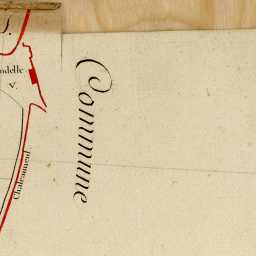 ndelle
V.
Commune
Chateauneuf